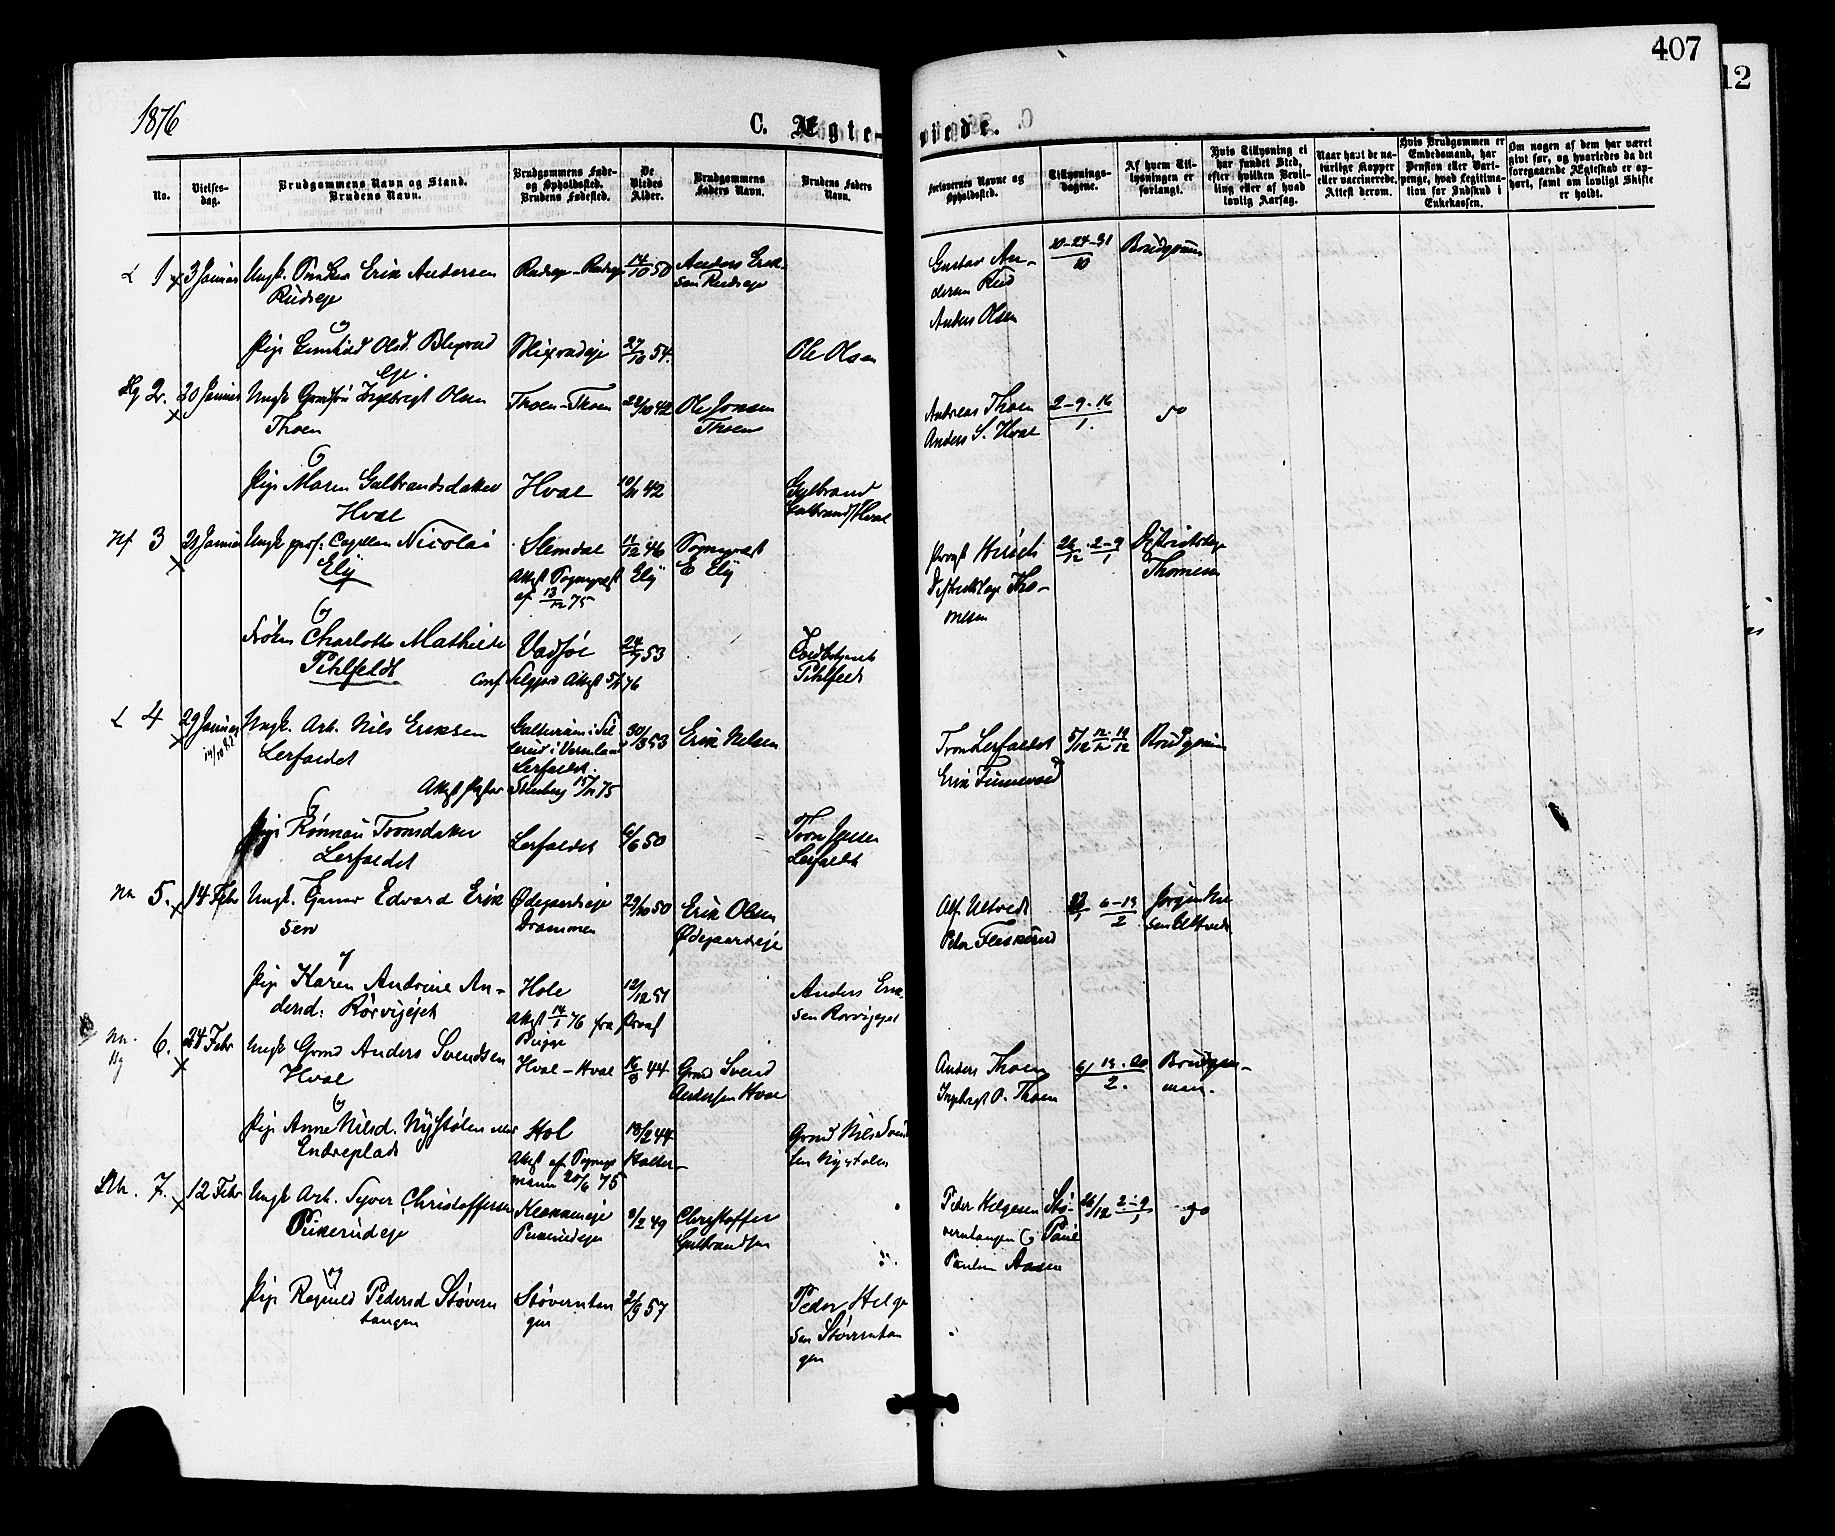 407
12
1876
C. Ægteviede.
No.
Vielses-
dag.
Brudgommens Navn og Stand.
Brudens Navn.
Brudgommens Føde-
og Opholdssted.
Brudens Fødested.
De
Viedes
Alder.
Brudgommens
Faders Navn.
Brudens Faders
Navn.
Forlovernes Navne og
Opholdssted.
Tillysnings-
dagene.
Af hvem Til-
lysningen er
forlangt.
Hvis Tillysning ei
har fundet Sted,
efter hvilken Bevil-
ling eller af hvad
lovlig Aarsag.
Naar havt de na-
turlige Kopper
eller vaccinerede.
Attest derom.
Hvis Brudgommen er
Embedsmand, har
Pension eller Vart-
penge, hvad Legitima-
tion for Indskud i
Enkekassen.
Om nogen af dem har været
givt før, og hvorledes da det
foregaaende Ægteskab er op-
hørt, samt om lovligt Skifte
er holdt.
1 3 Januar Ungk. Erik Andersen
Rudseje
14/10 50
Anders Erik-
sen Rudseje
Gustav An-
dersen Rud
Anders Olsen
10-24-31
10
Brudgom
og
Pige Gunhild Olsd.
eje.
27/10 54.
Ole Olsen
2. 20 Januar Ungk. Ingebregt Olsen
Thoen
Thoen-Thoen
28/10 42
Ole Jonsen
Thoen
Andreas Thoen
Anders S. Hval
2-9-16
1.
do
og
Pige Maren Gulbrandsdatter
Hval
Hval
10/11 42
Gulbrand
Gulbrands. Hval
3 21 Januar Ungk. pers. Capellan Nicolai
Elý
Slemdal
Attest Sognepræst Elý
af 13/12 75
11/12 46
Sognepræst
E Elý
Provst
Distriktslæge Tho-
mesen
26/12 2-9/1
Distriktslæge
Thomesen
og
Frøken Charlotte Mathilde
Pihlfeldt
Vadsøe
24/9 53
Pihlfeldt
4 29 Januar
14/10 82
Ungk. Arb. Nils Eriksen
Lerfaldet
i Vermland
Lerfaldet.
Attest Pastor Stenberg 15/11 75
30/3 53
Erik Nelsen
Tron Lerfaldet
Erik Finnerud
5/12 12/12 19/12
Brudgom
og
Pige Rønnau Tronsdatter
Lerfaldet
Lerfaldet
6/6 50
Tron Jensen
Lerfaldet
5. 14 Febr Ungk. Gunar Edvard Erik
sen
Ødegaardseje
Drammen
29/10 50
Erik Olsen
Ødegaardseje
Alf. Ultvedt
Peter Fleskerud
6-13
2
Jørgen
sen Ultvedt
og
Pige Karen Andrine An-
dersd. Rørvigejet
Hole
Attest 14/1 76 fra Provst
Bugge
12/12 51
Anders Erik
sen Rørvigejet
6. 24 Febr Ungk Grmd Anders Svendsen
Hval
Hval-Hval
16/8 44
Grmd Svend
Andersen Hval
Anders Thoen
Ingebregt O. Thoen
6/ 13. 20
2.
Brudgom-
men.
og
Pige Anne Nilsd. Nýstølen eller
Endreplads
Hol
18/2 44
Attest af Sognepr. Halter-
mann 20/6 75
Grmd Nils Svend
sen Nystølen
7. 12 Febr Ungk Arb. Syver Christoffersen
Pikerudeje
Klækkeneje
Pikerudejen
9/2 49
Christoffer
Gulbrandsen
Peder Helgesen Stø-
verntangen
Paulsen Aasen
26/12 2-9/1
do
og
Pige Ragnild Pedersd Støvern
tangen
Støverntan
gen
2/9 57
Peder Helge
sen Støverntan
gen